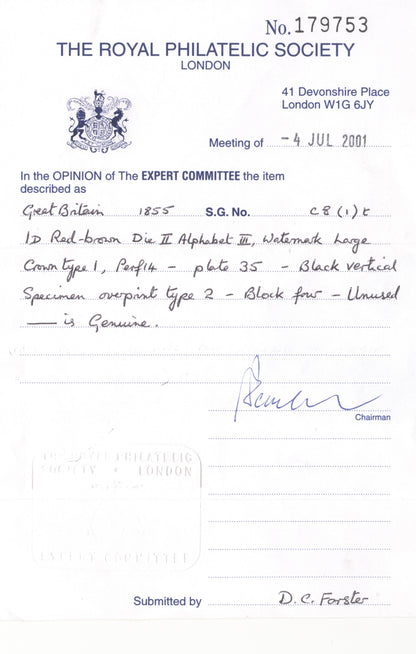 No. 179753
THE ROYAL PHILATELIC SOCIETY
LONDON
41 Devonshire Place
London W1G 6JY
Meeting of -4 JUL 2001
In the OPINION of The EXPERT COMMITTEE the item
described as
Great Britain 1855 S.G. No. C8(1)t
1D Red-brown Die II Alphabet III, Watermark Large
Crown type 1, Perf 14 - plate 35 - Black vertical
Specimen overprint type 2 - Block four - Unused
— is Genuine.
Chairman
THE ROYAL PHILATELIC
SOCIETY LONDON
EXPERT COMMITTEE
Submitted by D. C. Forster